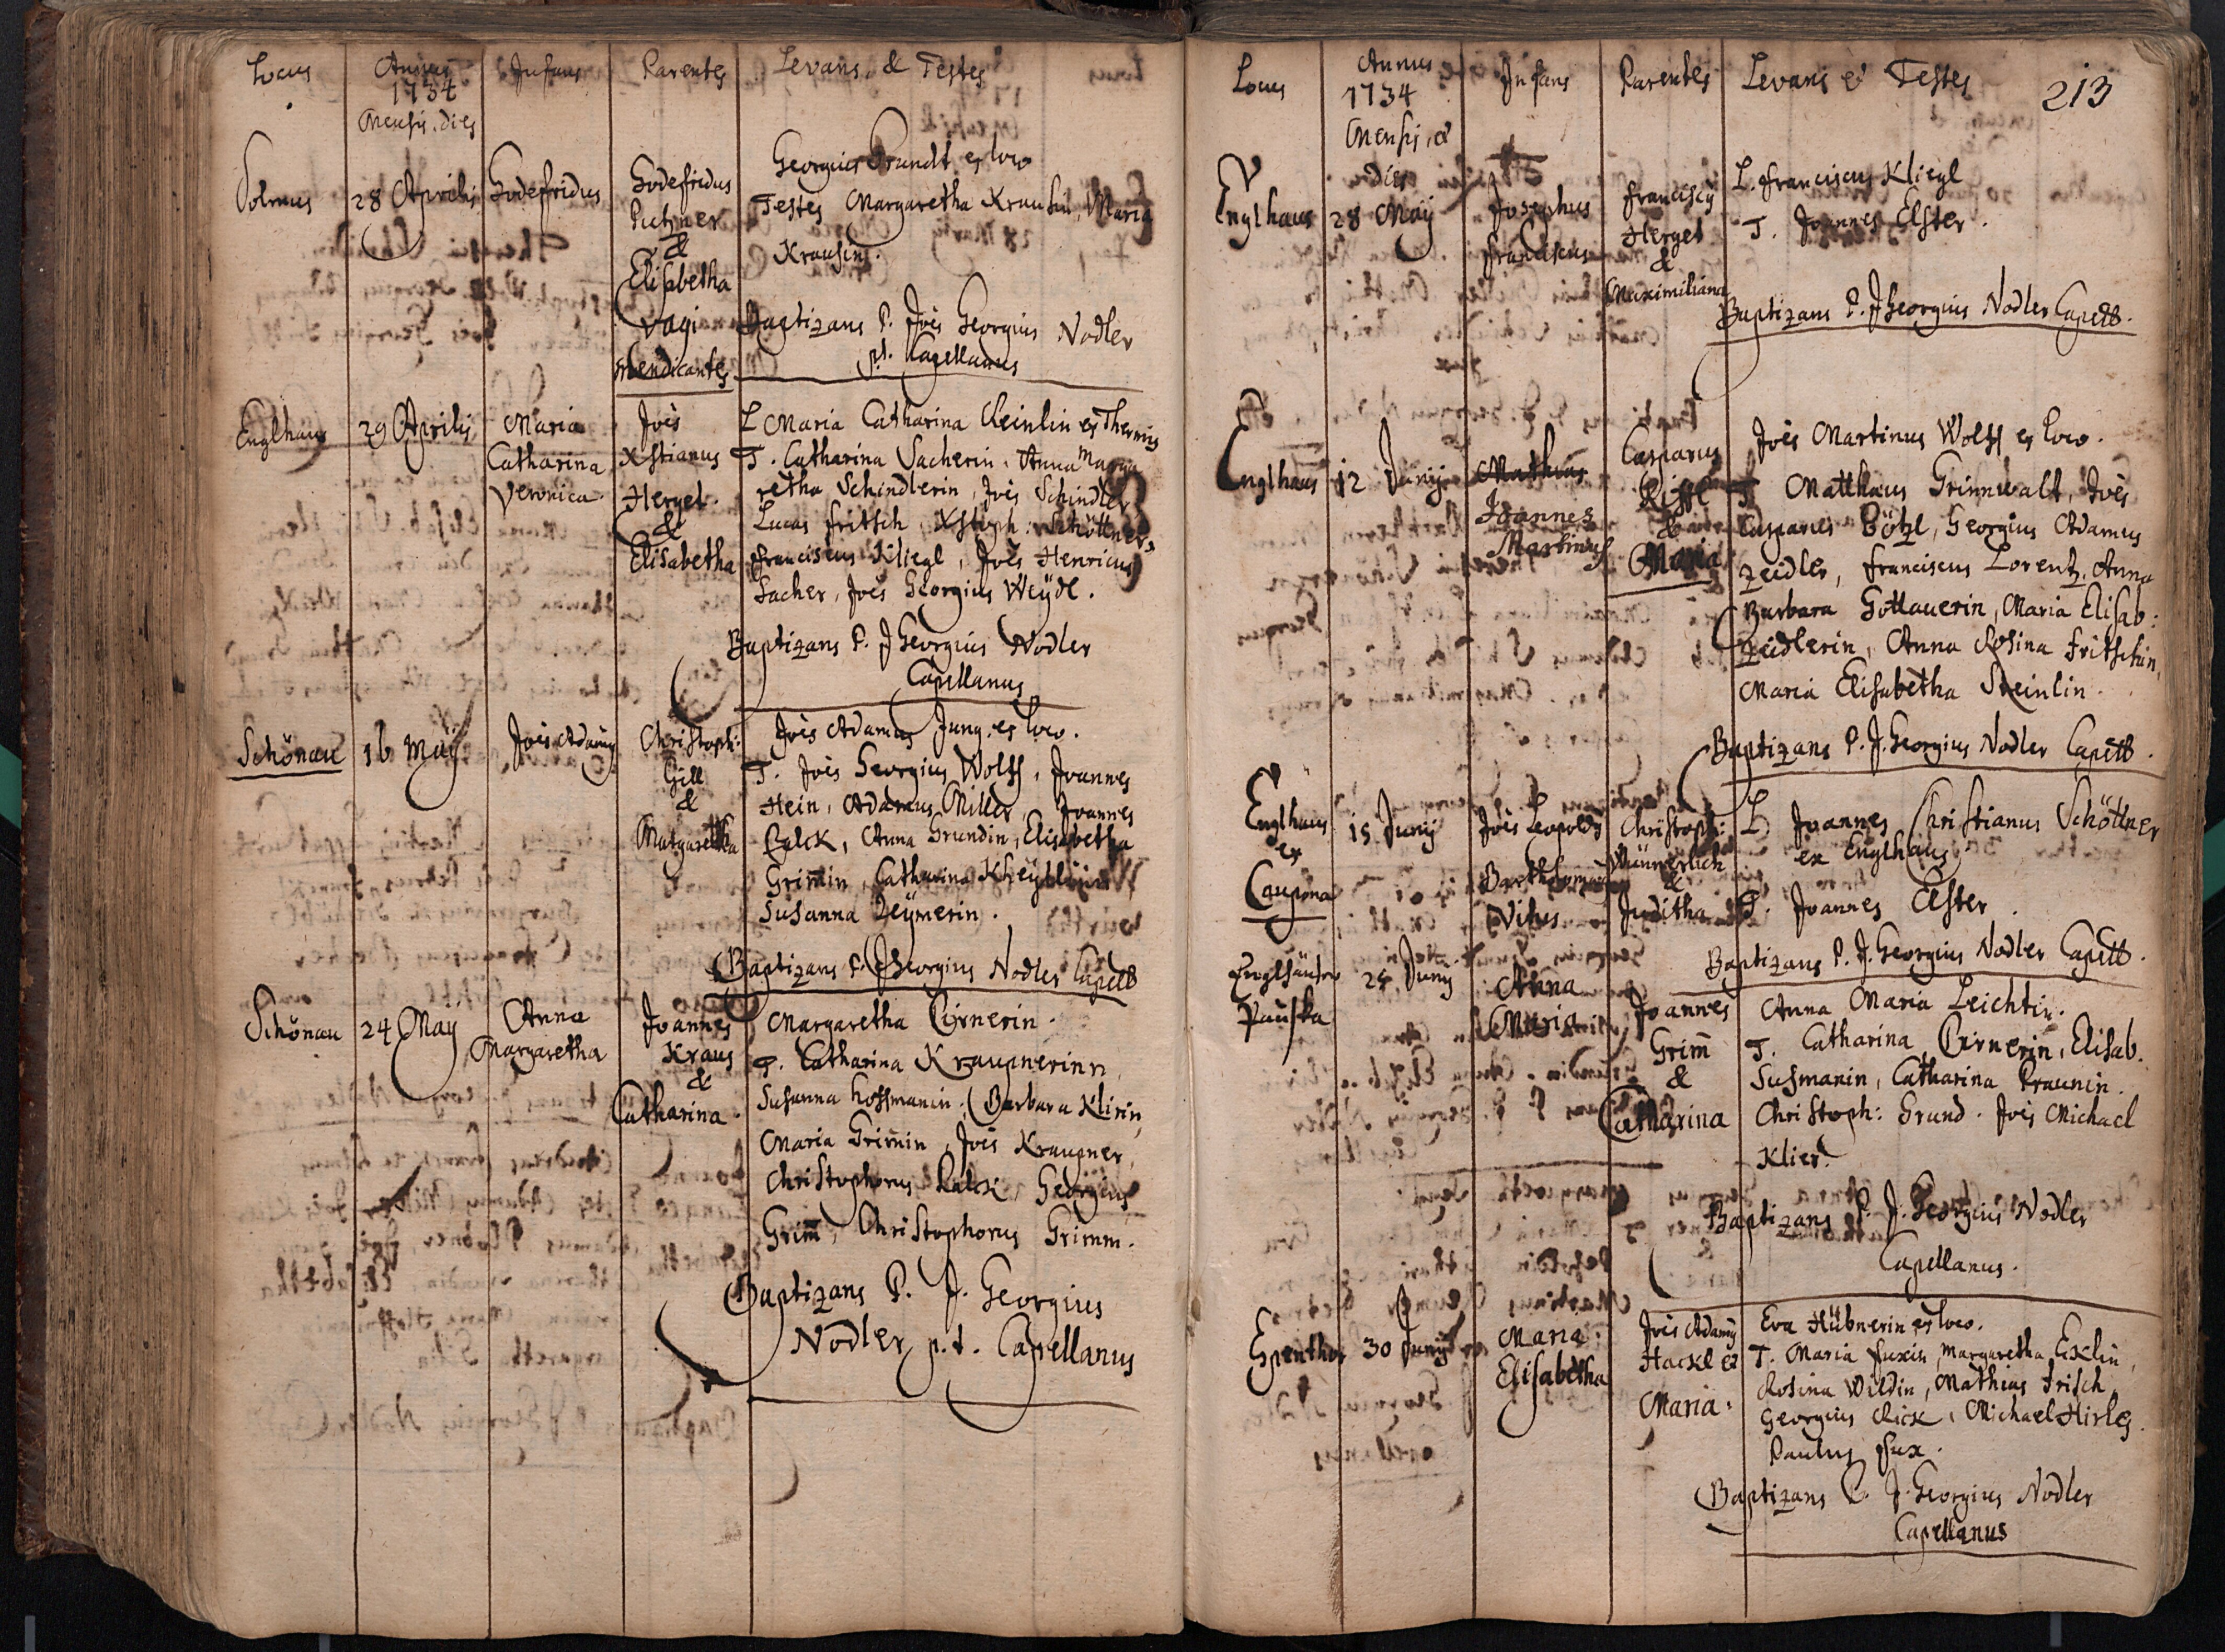 Locus
Annus
1734
Mensis. dies
Infans
Parentes
Levans & Testes
28 Aprilis
Godefridus
Godefridus
Putzner
&
Elisabetha
vagi
mendicantes
Georgius Brandt ex loco
Testes Margaretha Maria
Krausin.
Baptizans P. Joēs Georgius Nodler
p.t. Capellanus
Englhaus
29 Aprilis
Maria
Catharina
Veronica.
Joēs
Xstianus
Hergel
&
Elisabetha
L Maria Catharina Reinlin ex
T. Catharina Sacherin, Anna Marga
retha Schindlerin, Joēs Schindler
Lucas Fritsch, Xstoph: Schöttner,
Franciscus Kliegl, Joēs Henricus
Sacher, Joēs Georgius Weÿdl.
Baptizans P. J Georgius Nodler
Capellanus
Schönau
16 Maÿ
Joēs Adamus
Christoph:
Gill
&
Margaretha
Joēs Adamus Jung. ex loco.
T. Joēs Georgius Wolff, Joannes
Hein, Adamus Miller, Joannes
Balck, Anna Grundin, Elisabetha
Grim̄in, Catharina
Susanna Zeÿmerin.
Baptizans P. J Georgius Nodler Capell
Schönau
24 May
Anna
Margaretha
Joannes
Kraus
&
Catharina.
Margaretha Cirnerin.
T. Catharina Kraupnerinn
Susanna Hoffmanin, Barbara Klirin,
Maria Grim̄in, Joēs Kraupner,
Christophorus Balck, Georgius
Grim̄, Christophorus Grimm.
Baptizans P. J. Georgius
Nodler, p.t. Capellanus
213
Locus
Annus
1734
Mensis, &
dies
Infans
Parentes
Levans & Testes
Englhaus
28 Maÿ
Josephus
Franciscus
Franciscus
Hergel
&
Maximiliana
L. Franciscus Kliegl
T. Joannes Elster.
Baptizans P. J Georgius Nodler Capell.
Englhaus
12 Junÿ
Mathias
Joannes
Martinus
Casparus
&
Maria
Joēs Martinus Wolff ex loco.
T Matthaus Grinnwalt, Joēs
Casparus Pötzl, Georgius Adamus
Zeidler, Franciscus Lorentz, Anna
Barbara Gottauerin, Maria Elisab:
Zeidlerin, Anna Rosina Fritschin,
Maria Elisabetha Steinlin.
Baptizans P. J. Georgius Nodler Capell.
Englhaus
ex
Caupona
15 Junÿ
Joēs Leopold
Bartholomaeus
Vitus
Christoph:
&
Juditha
L Joannes Christianus Schöttner
ex Englhaus
T. Joannes Elster.
Baptizans P. J. Georgius Nodler Capell.
25 Junÿ
Anna
Maria
Joannes
Grim̄
&
Catharina
Anna Maria Leichtin.
T. Catharina Cirnerin, Elisab.
Susmanin, Catharina Praunin.
Christoph: Grund. Joēs Michael
Klier.
Baptizans P. J. Georgius Nodler
Capellanus.
Espenthor
30 Junÿ
Maria
Elisabetha
Joēs Adamus
Hackl &
Maria.
Eva Hübnerin ex loco.
T. Maria Fuxin, Margaretha Eiklin,
Rosina Wildin, Mathias Frisch
Georgius Rick, Michael Hirles.
Paulus Fux.
Baptizans P. J. Georgius Nodler
Capellanus